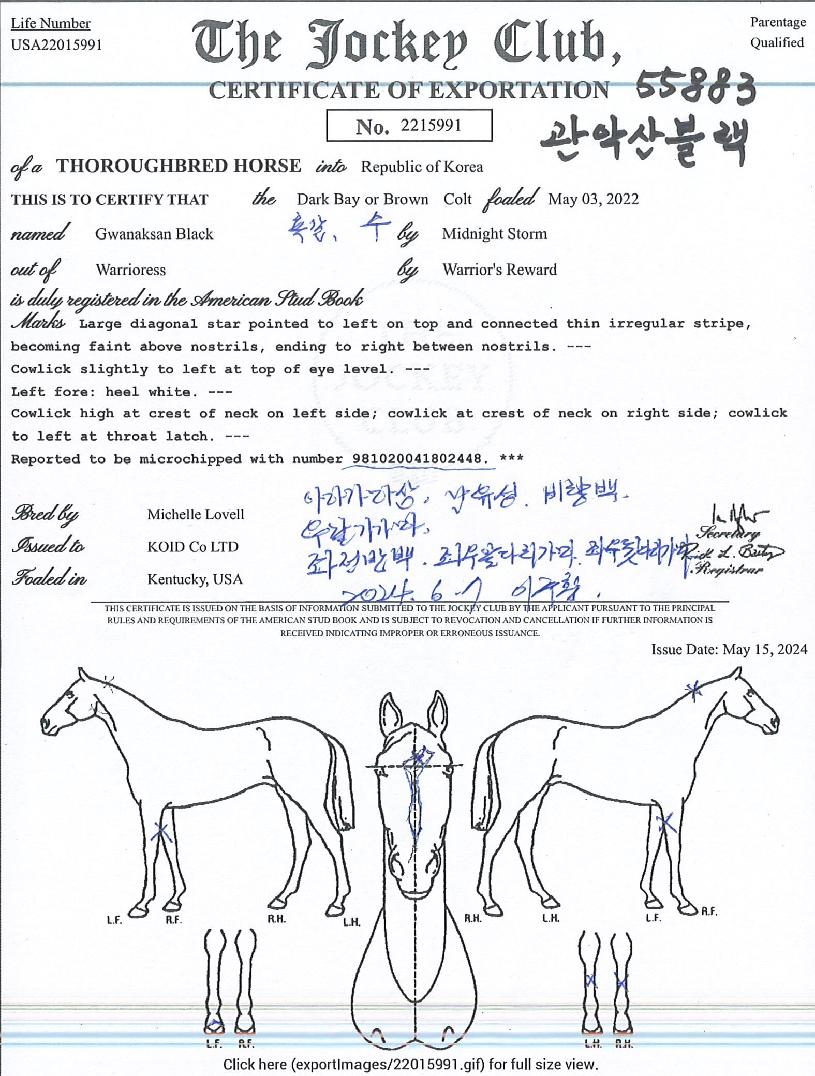 Life Number
USA22015991
Parentage
Qualified
The Jockey Club,
CERTIFICATE OF EXPORTATION
55883
No. 2215991
관악산블랙
of a THOROUGHBRED HORSE into Republic of Korea
THIS IS TO CERTIFY THAT the Dark Bay or Brown Colt foaled May 03, 2022
named Gwanaksan Black 흑갈, 수 by Midnight Storm
out of Warrioress by Warrior's Reward
is duly registered in the American Stud Book
Marks Large diagonal star pointed to left on top and connected thin irregular stripe,
becoming faint above nostrils, ending to right between nostrils. ---
Cowlick slightly to left at top of eye level. ---
Left fore: heel white. ---
Cowlick high at crest of neck on left side; cowlick at crest of neck on right side; cowlick
to left at throat latch. ---
Reported to be microchipped with number 981020041802448. ***
JOCKEY
CLUB
Bred by Michelle Lovell
Issued to KOID Co LTD
Foaled in Kentucky, USA
비량백.
2024. 6-7
Secretary
Registrar
THIS CERTIFICATE IS ISSUED ON THE BASIS OF INFORMATION SUBMITTED TO THE JOCKEY CLUB BY THE APPLICANT PURSUANT TO THE PRINCIPAL
RULES AND REQUIREMENTS OF THE AMERICAN STUD BOOK AND IS SUBJECT TO REVOCATION AND CANCELLATION IF FURTHER INFORMATION IS
RECEIVED INDICATING IMPROPER OR ERRONEOUS ISSUANCE.
Issue Date: May 15, 2024
L.F. R.F. R.H. L.H. R.H. L.H. L.F. R.F.
L.F. R.F. L.H. R.H.
Click here (exportImages/22015991.gif) for full size view.